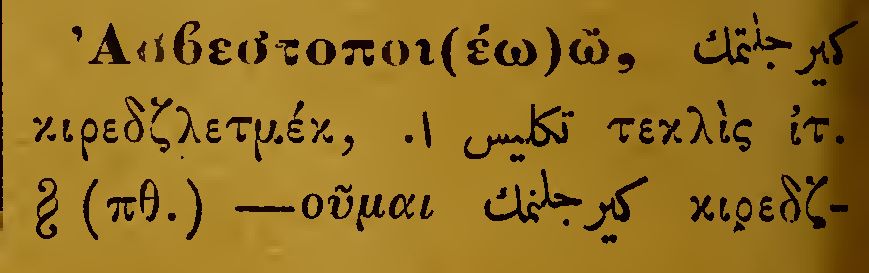 Ἀσβεστοποι(έω)ῶ, كیرجلتمك
κιρεδζλετμέκ, ا. تكلیس τεκλὶς ἰτ.
§ (πθ.) —οῦμαι كیرجلنمك κιρεδζ-